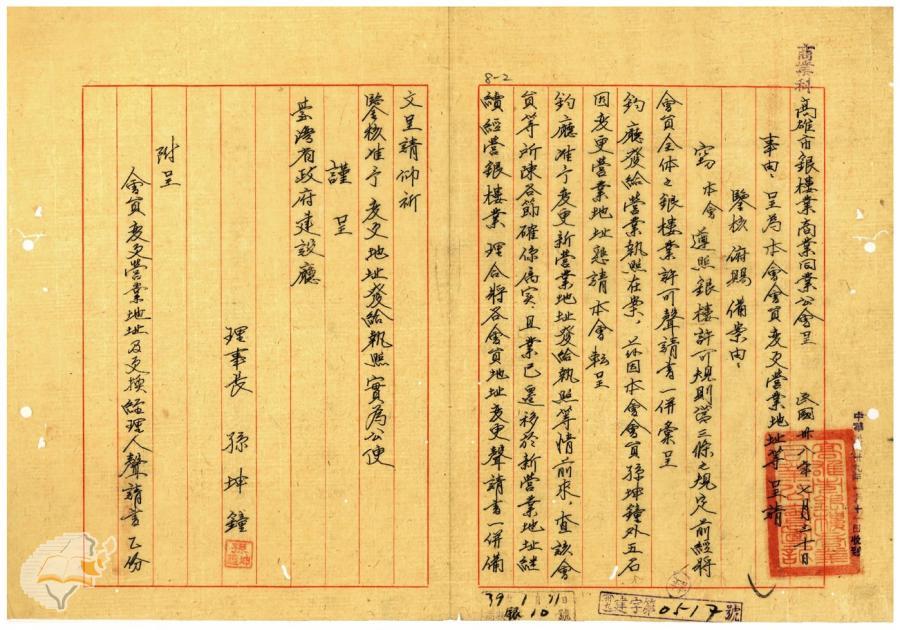 商業科
高雄市銀樓業商業同業公會呈 民國卅八年七月三十日
事由：呈為本會會員變更營業地址等呈請
鑒核府賜備案由：
竊本會遵照銀樓許可規則第三條之規定前經將
會員全体之銀樓業許可聲請書一併彙呈
鈞廳發給營業執照在案，茲因本會會員孫坤鐘外五名
因變更營業地址懇請本會転呈
鈞廳准予變更新營業地址發給執照等情前來，查該會
員等所陳各節確係屬实，且業已遷移於新營業地址継
續經營銀樓業理合將各會員地址變更聲請書一併備
8-2
文呈請仰祈
鑒核准予變更地址發給執照實為公便
謹呈
臺灣省政府建設廳
理事長 孫坤鐘
附呈
會員變更營業地址及更換經理人聲請書乙份
建字第0517號
39 1 21
銀 10 號